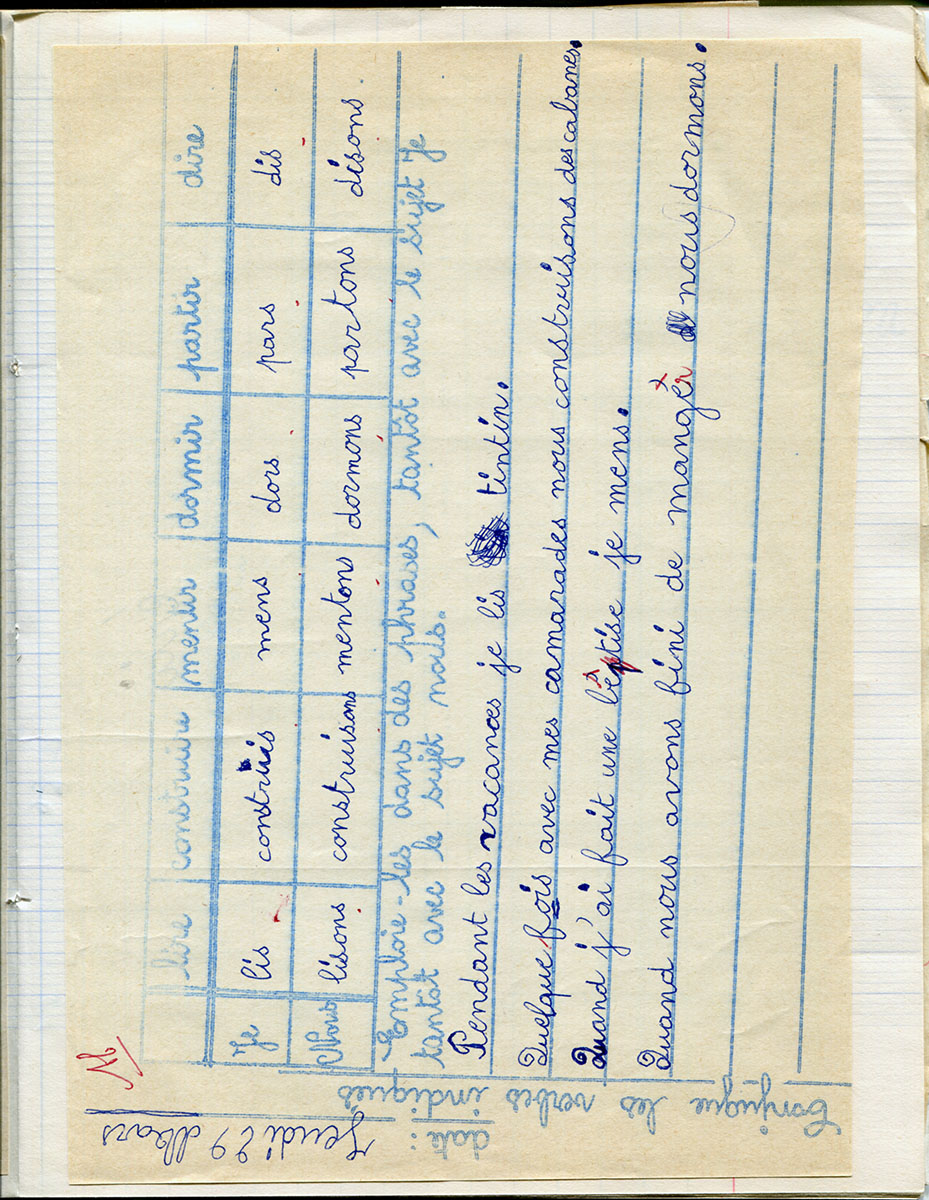 date : Jeudi 29 Mars
Conjugue les verbes indiqués
lire construire mentir dormir partir dire
Je lis construis mens dors pars dis
Nous lisons construisons mentons dormons partons disons.
Emploie-les dans des phrases, tantôt avec le sujet Je
tantôt avec le sujet nous.
Pendant les vacances je lis tintin.
Quelque fois avec mes camarades nous construisons des cabanes.
Quand j'ai fait une bêtise je mens.
Quand nous avons fini de manger nous dormons.